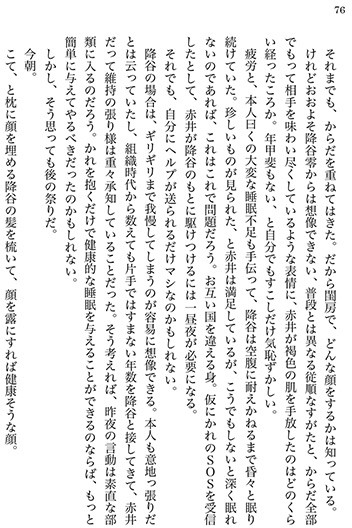 76
それまでも、からだを重ねてはきた。だから閨房で、どんな顔をするかは知っている。
けれどおおよそ降谷零からは想像できない、普段とは異なる従順なすがたと、からだ全部
でもって相手を味わい尽くしているような表情に、赤井が褐色の肌を手放したのはどのくら
い経ったころか。年甲斐もない、と自分でもすこしだけ気恥ずかしい。
疲労と、本人曰くの大変な睡眠不足も手伝って、降谷は空腹に耐えかねるまで昏々と眠り
続けていた。珍しいものが見られた、と赤井は満足しているが、こうでもしないと深く眠れ
ないのであれば、これはこれで問題だろう。お互い国を違える身。仮にかれのSOSを受信
したとして、赤井が降谷のもとに駆けつけるには一昼夜が必要になる。
それでも、自分にヘルプが送られるだけマシなのかもしれない。
降谷の場合は、ギリギリまで我慢してしまうのが容易に想像できる。本人も意地っ張りだ
とは云っていたし、組織時代から数えても片手ではすまない年数を降谷と接してきて、赤井
だって維持の張り様は重々承知していることだった。そう考えれば、昨夜の言動は素直な部
類に入るのだろう。かれを抱くだけで健康的な睡眠を与えることができるのならば、もっと
簡単に与えてやるべきだったのかもしれない。
しかし、そう思っても後の祭りだ。
今朝。
こて、と枕に顔を埋める降谷の髪を梳いて、顔を露にすれば健康そうな顔。